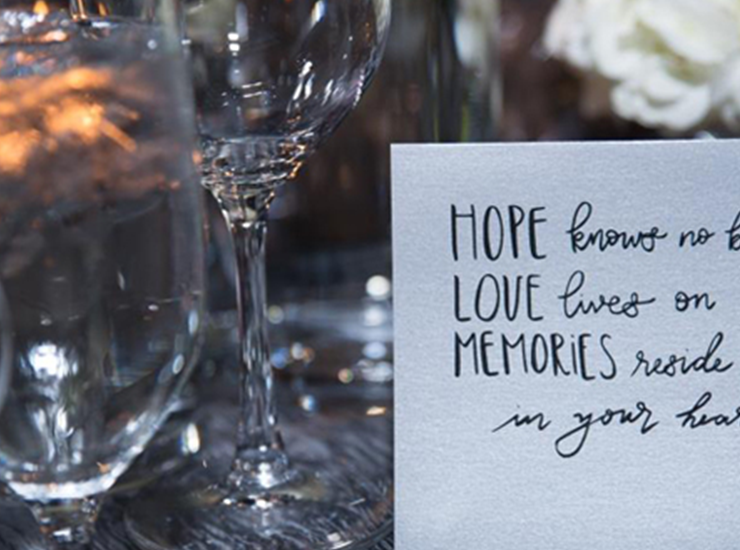 HOPE knows no
LOVE lives on
MEMORIES reside
in your